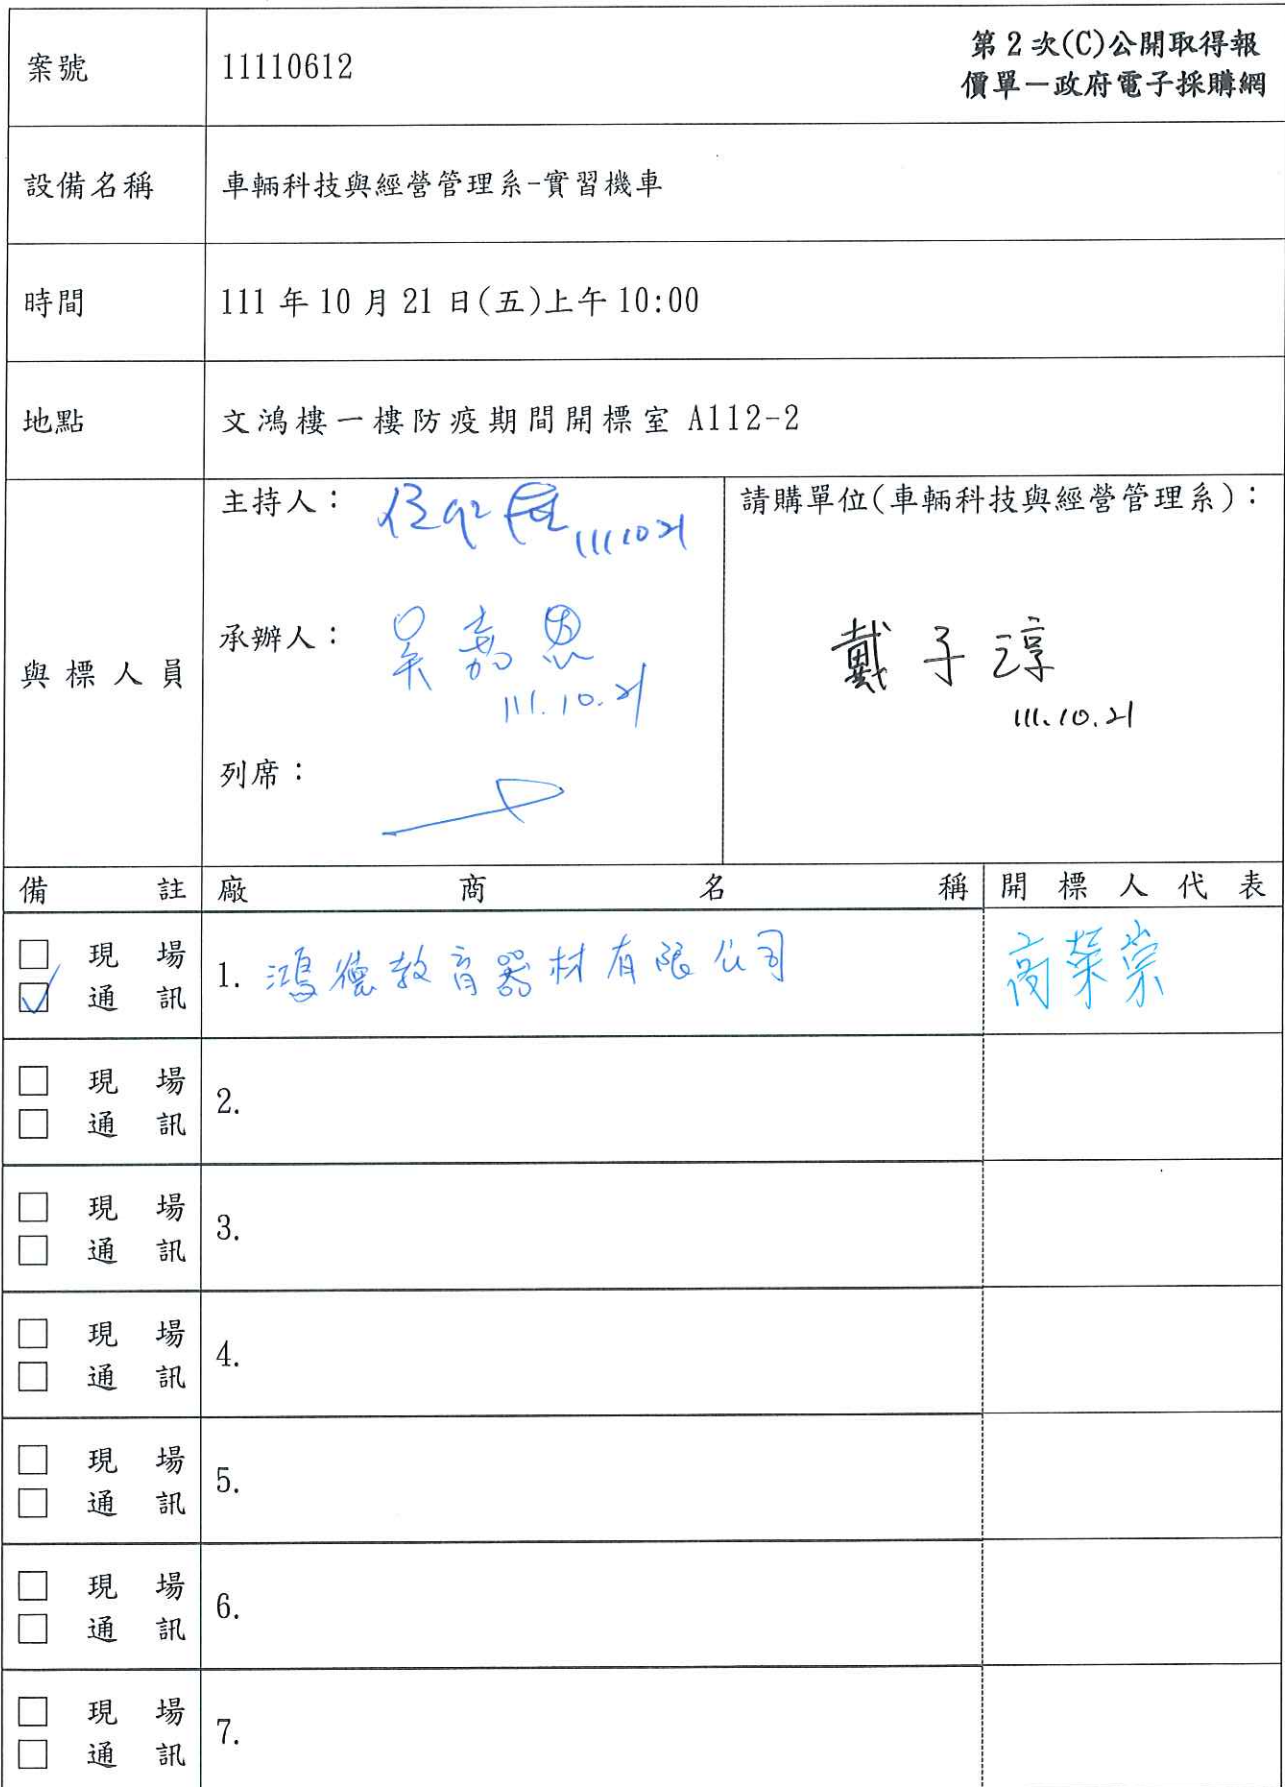 案號 11110612 第2次(C)公開取得報
價單－政府電子採購網
設備名稱 車輛科技與經營管理系-實習機車
時間 111年10月21日(五)上午10:00
地點 文鴻樓一樓防疫期間開標室 A112-2
與標人員
主持人： 1111021
承辦人： 吳嘉恩
111.10.21
列席：
請購單位(車輛科技與經營管理系)：
戴子淳
111.10.21
備註 廠商名稱 開標人代表
□ 現場
☑ 通訊
1. 鴻德教育器材有限公司 高榮崇
□ 現場
□ 通訊
2.
□ 現場
□ 通訊
3.
□ 現場
□ 通訊
4.
□ 現場
□ 通訊
5.
□ 現場
□ 通訊
6.
□ 現場
□ 通訊
7.